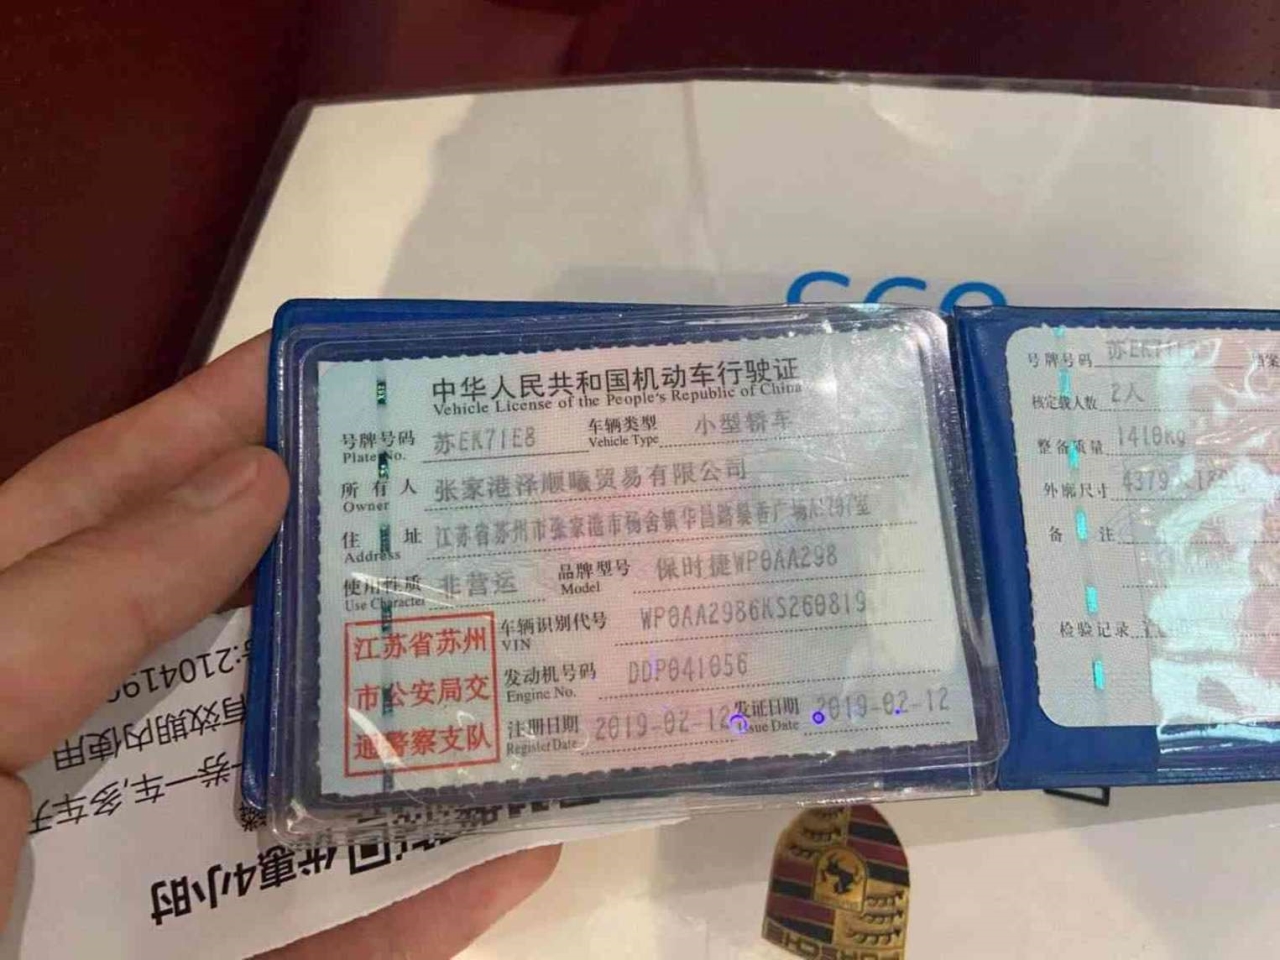 中华人民共和国机动车行驶证
Vehicle License of the People's Republic of China
号牌号码 苏EK71E8 车辆类型 小型轿车
Plate No. Vehicle Type
所有人 张家港泽顺曦贸易有限公司
Owner
住址 江苏省苏州市张家港市杨舍镇华昌路
Address
使用性质 非营运 品牌型号 保时捷WP0AA298
Use Character Model
江苏省苏州
市公安局交
通警察支队
车辆识别代号 WP0AA2986KS260819
VIN
发动机号码 DDP041056
Engine No.
注册日期 2019-02-12 发证日期 2019-02-12
Register Date Issue Date
号牌号码
核定载人数 2人
整备质量 1410kg
外廓尺寸 4379
备注
检验记录
有效期内使用
一券一车,多车
优惠4小时
PORSCHE